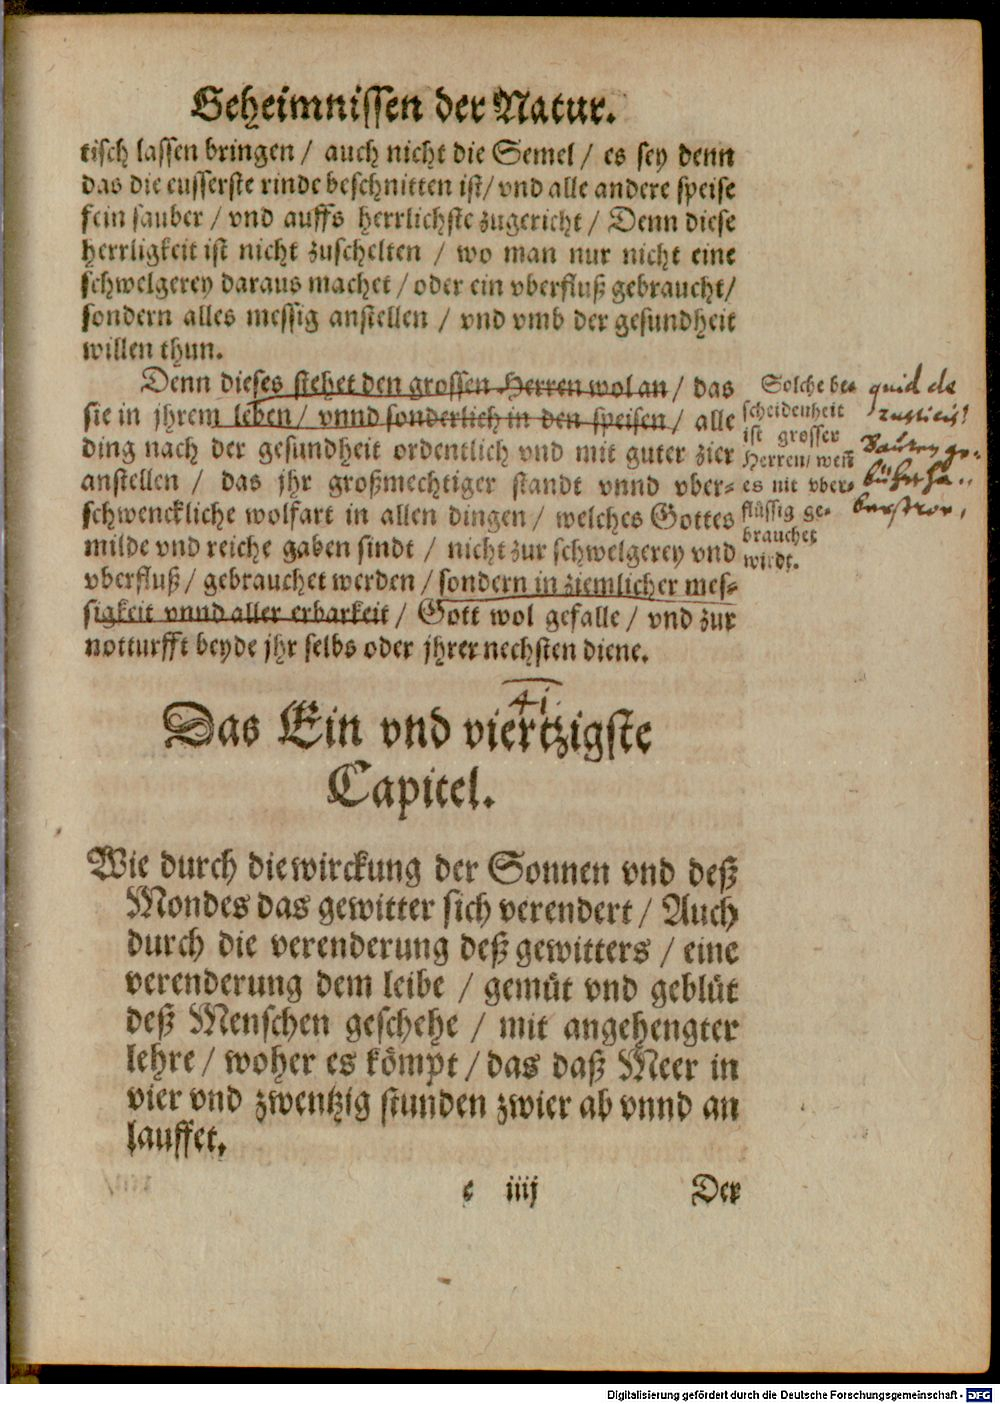 Geheimnissen der Natur.
tisch lassen bringen / auch nicht die Semel / es sey denn
das die eusserste rinde beschnitten ist / vnd alle andere speise
fein sauber / vnd auffs herrlichste zugericht / Denn diese
herrligkeit ist nicht zuschelten / wo man nur nicht eine
schwelgerey daraus machet / oder ein vberfluß gebraucht /
sondern alles messig anstellen / vnd vmb der gesundheit
willen thun.
Denn dieses stehet den grossen Herren wol an / das
sie in jhrem leben / vnnd sonderlich in den speisen / alle
ding nach der gesundheit ordentlich vnd mit guter zier
anstellen / das jhr großmechtiger standt vnnd vber-
schwenckliche wolfart in allen dingen / welches Gottes
milde vnd reiche gaben sindt / nicht zur schwelgerey vnd
vberfluß / gebrauchet werden / sondern in ziemlicher mes-
sigkeit vnnd aller erbarkeit / Gott wol gefalle / vnd zur
notturfft beyde jhr selbs oder jhrer nechsten diene.
Solche be-
scheidenheit
ist grosser
Herren / weñ
es nit vber-
flüssig ge-
brauchet
wirdt.
quid de
rusticis?
41.
Das Ein vnd viertzigste
Capitel.
Wie durch die wirckung der Sonnen vnd deß
Mondes das gewitter sich verendert / Auch
durch die verenderung deß gewitters / eine
verenderung dem leibe / gemüt vnd geblüt
deß Menschen geschehe / mit angehengter
lehre / woher es kömpt / das daß Meer in
vier vnd zwentzig stunden zwier ab vnnd an
lauffet.
e iiij Der
Digitalisierung gefördert durch die Deutsche Forschungsgemeinschaft - DFG